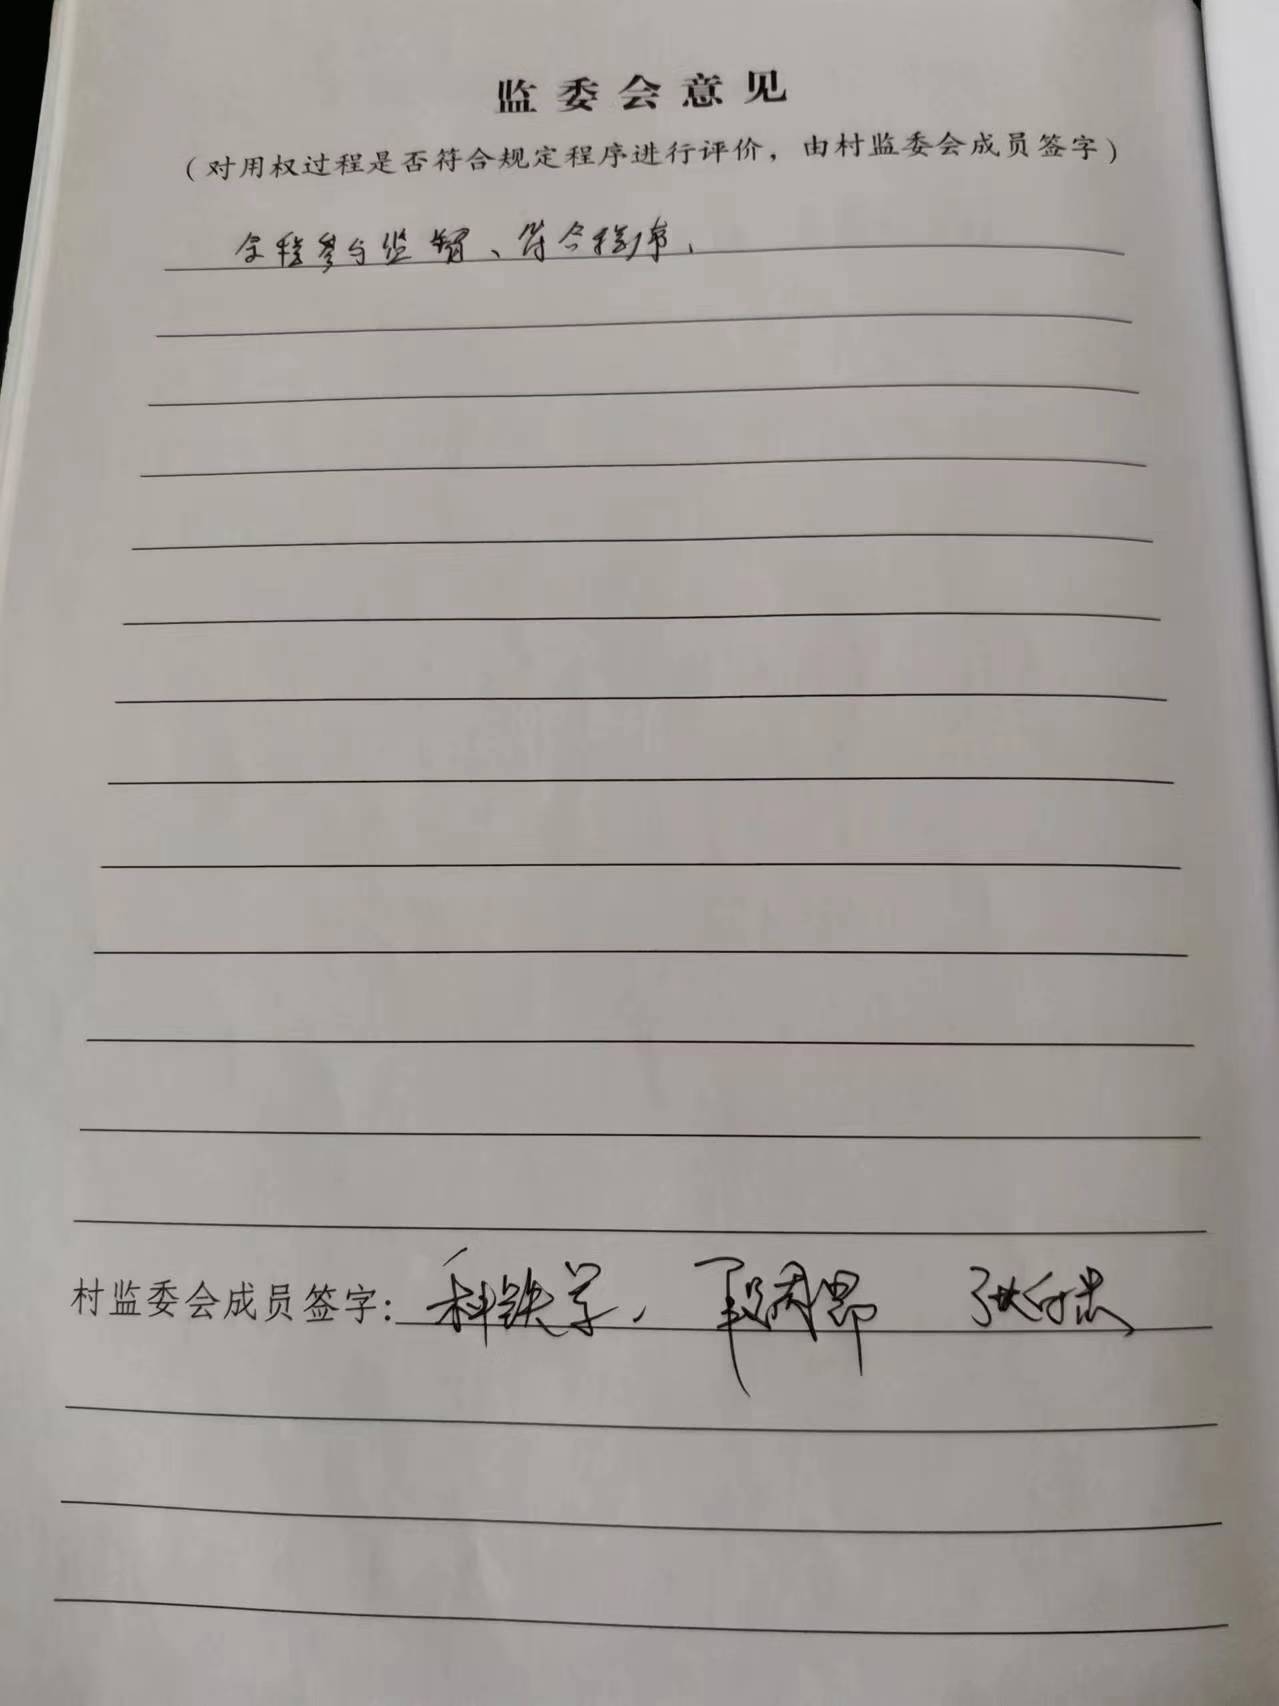 监委会意见
（对用权过程是否符合规定程序进行评价，由村监委会成员签字）
全程参与监督、符合程序、
村监委会成员签字：科铁学、段周思 张